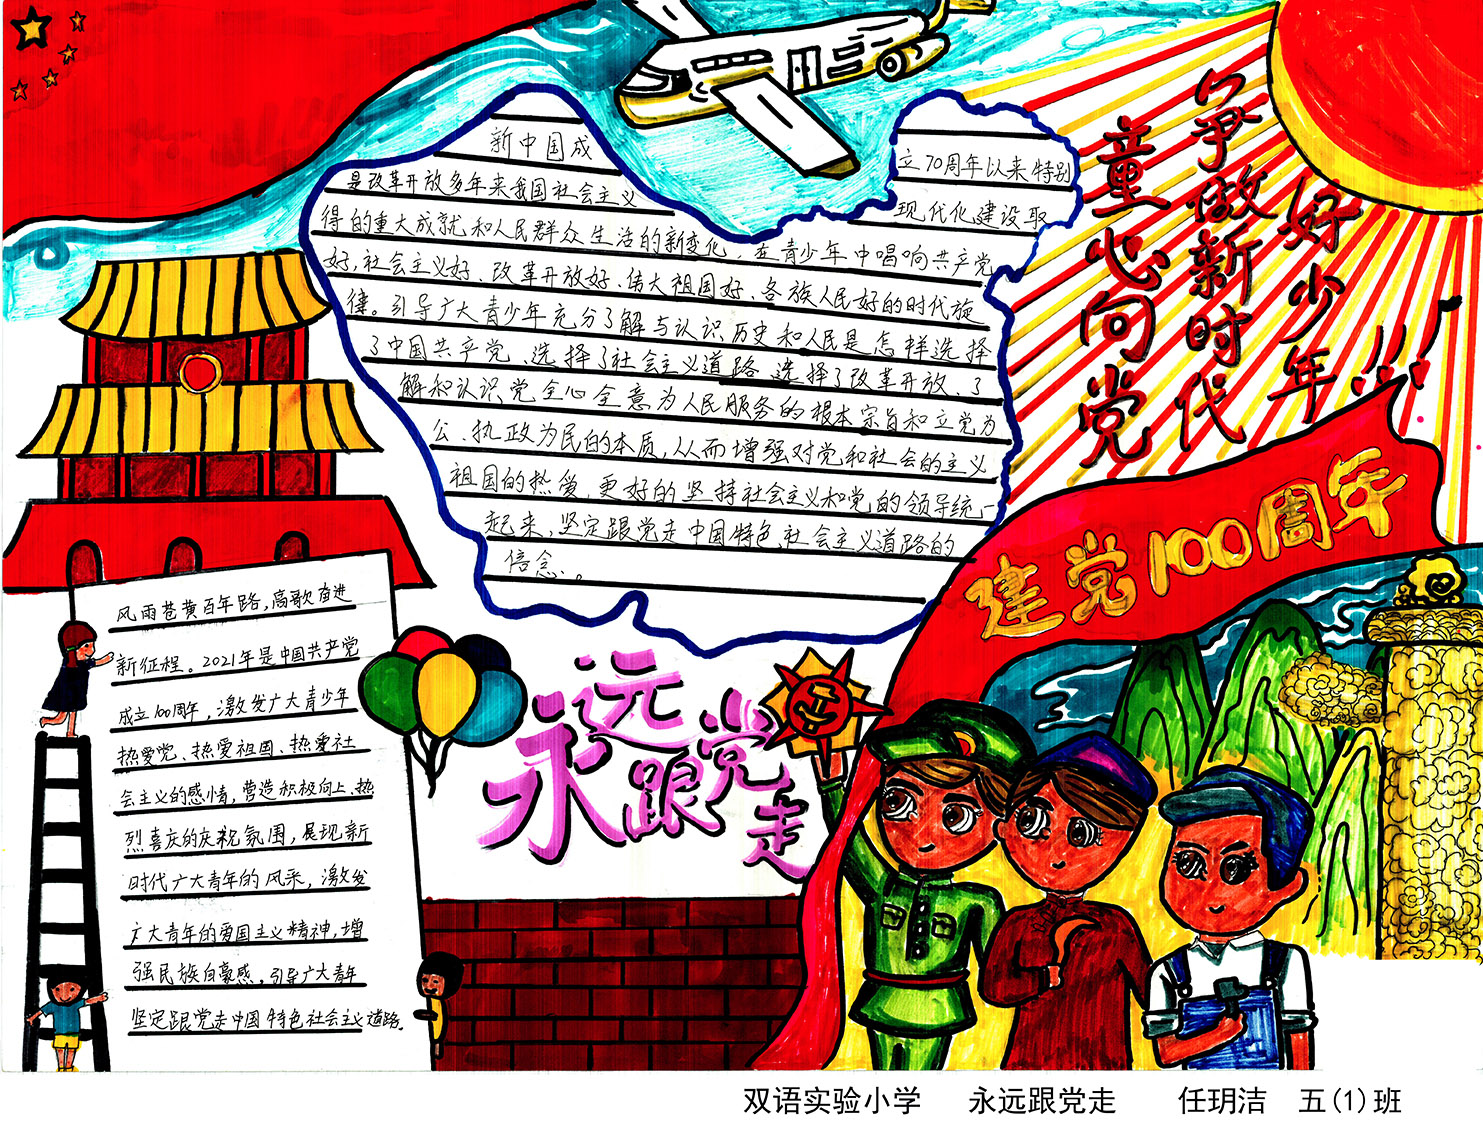 新中国成
立70周年以来特别
是改革开放多年来我国社会主义
现代化建设取
得的重大成就和人民群众生活的新变化，在青少年中唱响共产党
好，社会主义好、改革开放好、伟大祖国好、各族人民好的时代旋
律。引导广大青少年充分了解与认识历史和人民是怎样选择
了中国共产党、选择了社会主义道路、选择了改革开放、了
解和认识党全心全意为人民服务的根本宗旨和立党为
公、执政为民的本质，从而增强对党和社会的主义
祖国的热爱，更好的坚持社会主义和党的领导统一
起来，坚定跟党走中国特色社会主义道路的
信念。
童心向党
争做新时代
好少年!!!
建党100周年
风雨苍黄百年路，高歌奋进
新征程。2021年是中国共产党
成立100周年，激发广大青少年
热爱党、热爱祖国、热爱社
会主义的感情，营造积极向上、热
烈喜庆的庆祝氛围，展现新
时代广大青年的风采，激发
广大青年的爱国主义精神，增
强民族自豪感，引导广大青年
坚定跟党走中国特色社会主义道路。
永远跟党走
双语实验小学 永远跟党走 任玥洁 五(1)班